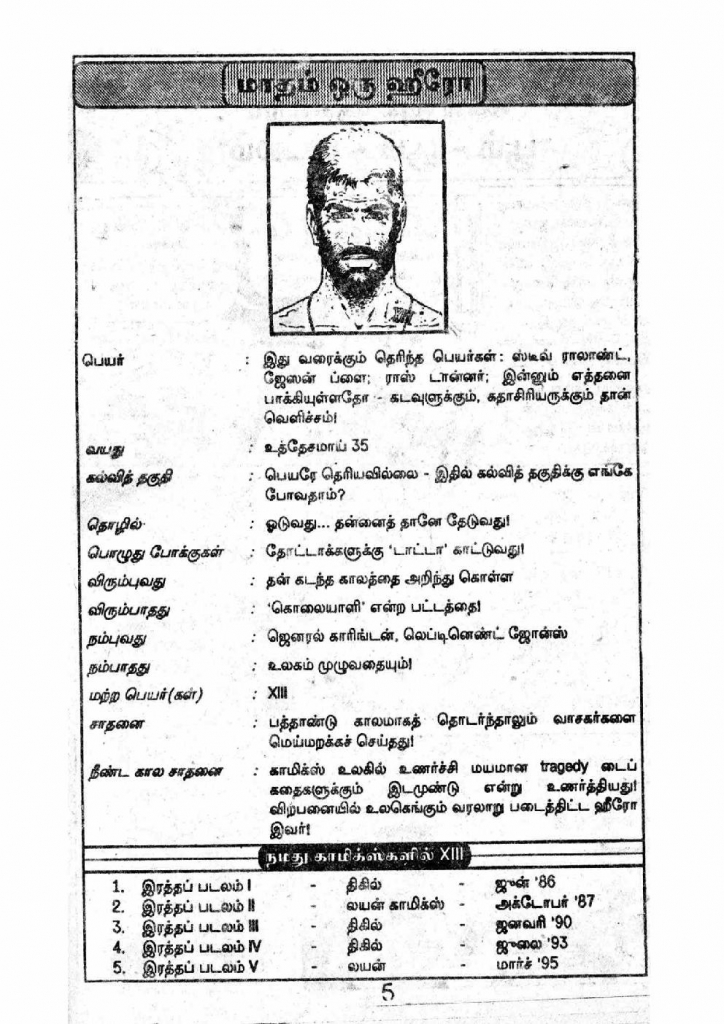 மாதம் ஒரு ஹீரோ
பெயர் : இது வரைக்கும் தெரிந்த பெயர்கள் : ஸ்டீவ் ராலாண்ட்,
ஜேஸன் ப்ளை; ராஸ் டான்னர்; இன்னும் எத்தனை
பாக்கியுள்ளதோ - கடவுளுக்கும், கதாசிரியருக்கும் தான்
வெளிச்சம்!
வயது : உத்தேசமாய் 35
கல்வித் தகுதி : பெயரே தெரியவில்லை - இதில் கல்வித் தகுதிக்கு எங்கே
போவதாம்?
தொழில் : ஓடுவது... தன்னைத் தானே தேடுவது!
பொழுது போக்குகள் : தோட்டாக்களுக்கு 'டாட்டா' காட்டுவது!
விரும்புவது : தன் கடந்த காலத்தை அறிந்து கொள்ள
விரும்பாதது : 'கொலையாளி' என்ற பட்டத்தை!
நம்புவது : ஜெனரல் காரிங்டன், லெப்டினெண்ட் ஜோன்ஸ்
நம்பாதது : உலகம் முழுவதையும்!
மற்ற பெயர்(கள்) : XIII
சாதனை : பத்தாண்டு காலமாகத் தொடர்ந்தாலும் வாசகர்களை
மெய்மறக்கச் செய்தது!
நீண்ட கால சாதனை : காமிக்ஸ் உலகில் உணர்ச்சி மயமான tragedy டைப்
கதைகளுக்கும் இடமுண்டு என்று உணர்த்தியது!
விற்பனையில் உலகெங்கும் வரலாறு படைத்திட்ட ஹீரோ
இவர்!
நமது காமிக்ஸ்களில் XIII
1. இரத்தப் படலம் I - திகில் - ஜுன் '86
2. இரத்தப் படலம் II - லயன் காமிக்ஸ் - அக்டோபர் '87
3. இரத்தப் படலம் III - திகில் - ஜனவரி '90
4. இரத்தப் படலம் IV - திகில் - ஜுலை '93
5. இரத்தப் படலம் V - லயன் - மார்ச் '95
5